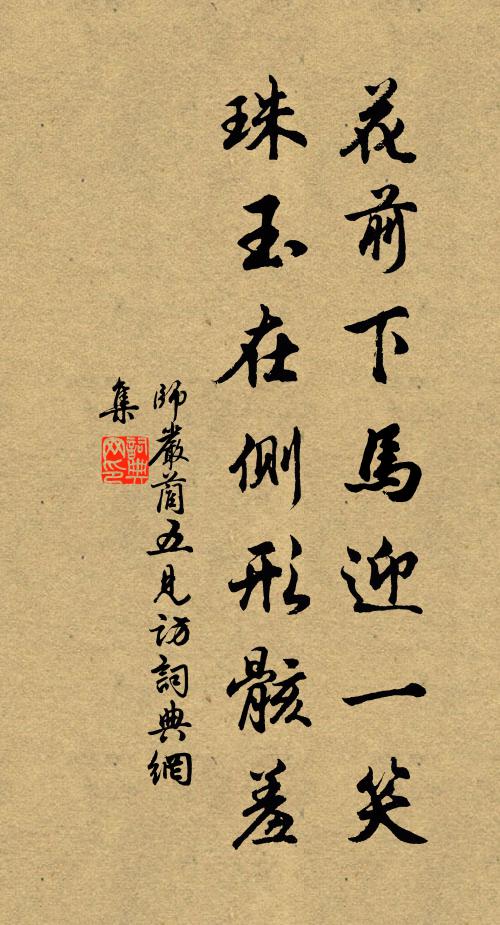 花前下馬迎一笑
珠玉在側形骸羞
師嚴蕳五見訪詞典網
集
詞典网印